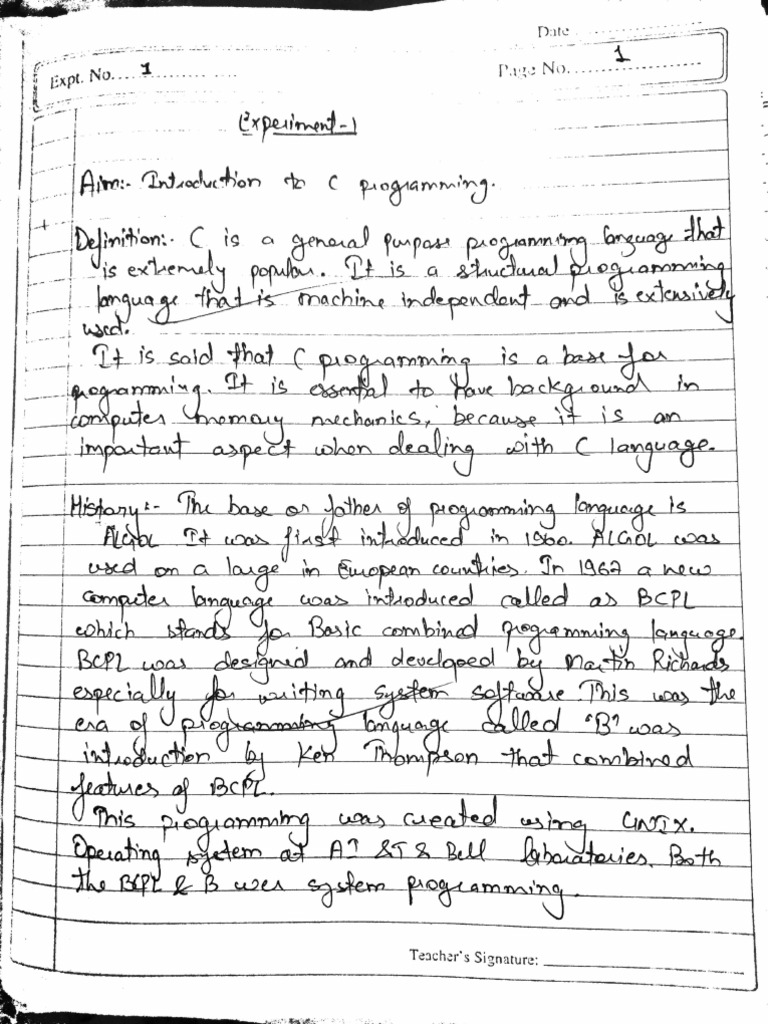 Date
Expt. No. 1
Page No. 1
Experiment-1
Aim:- Introduction to C programming.
Definition:- C is a general purpose programming language that
is extremely popular. It is a structural programming
language that is machine independent and is extensively
used.
It is said that C programming is a base for
programming. It is essential to have background in
computer memory mechanics, because it is an
important aspect when dealing with C language.
History:- The base or father of programming language is
ALGOL It was first introduced in 1960. ALGOL was
used on a large in European countries. In 1967 a new
computer language was introduced called as BCPL
which stands for Basic combined programming language.
BCPL was designed and developed by Martin Richards
especially for writing system software. This was the
era of programming language called "B" was
introduction by Ken Thompson that combined
features of BCPL.
This programming was created using UNIX.
Operating system at AT &T & Bell laboratories. Both
the BCPL & B wer system programming.
Teacher's Signature: